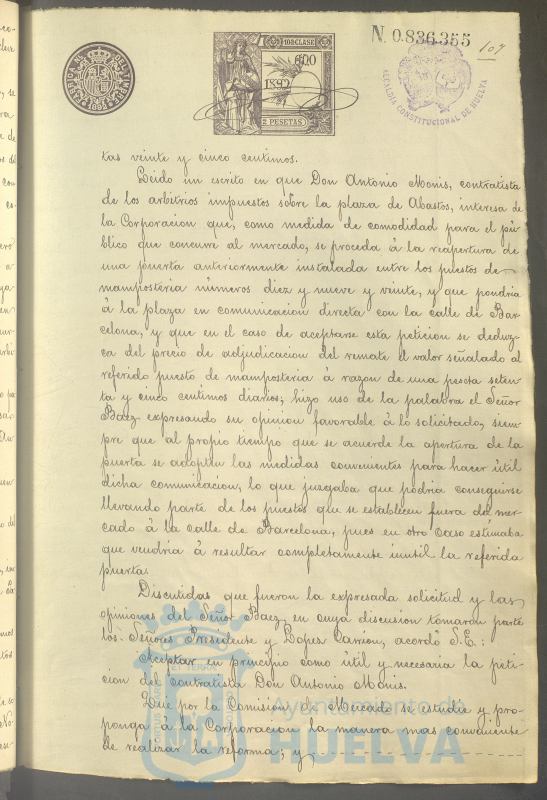 N. 0.836.355
107
10ª CLASE
1892
2 PESETAS
ALCALDIA CONSTITUCIONAL DE HUELVA
tas veinte y cinco centimos.
Leido un escrito en que Don Antonio Monis, contratista
de los arbitrios impuestos sobre la plaza de Abastos, interesa de
la Corporacion que, como medida de comodidad para el pú-
blico que concurre al mercado, se proceda à la reapertura de
una puerta anteriormente instalada entre los puestos de
mamposteria números diez y nueve y veinte, y que pondria
à la plaza en comunicacion directa con la calle de Bar-
celona, y que en el caso de aceptarse esta peticion se deduz-
ca del precio de adjudicacion del remate el valor señalado al
referido puesto de mamposteria à razon de una peseta seten-
ta y cinco centimos diarios; hizo uso de la palabra el Señor
Baez expresando su opinion favorable à lo solicitado, siem-
pre que al propio tiempo que se acuerde la apertura de la
puerta se adopten las medidas convenientes para hacer útil
dicha comunicacion, lo que juzgaba que podria conseguirse
llevando parte de los puestos que se establecen fuera del mer-
cado à la calle de Barcelona, pues en otro caso estimaba
que vendria à resultar completamente inutil la referida
puerta.
Discutidas que fueron la expresada solicitud y las
opiniones del Señor Baez, en cuya discusion tomaron parte
los Señores Presidente y Lopez Carrion, acordó S.E.:
Aceptar en principio como útil y necesaria la peti-
cion del contratista Don Antonio Monis.
Que por la Comision de Mercado se estudie y pro-
ponga à la Corporacion la manera mas conveniente
de realizar la reforma; y
Ayuntamiento de
HUELVA